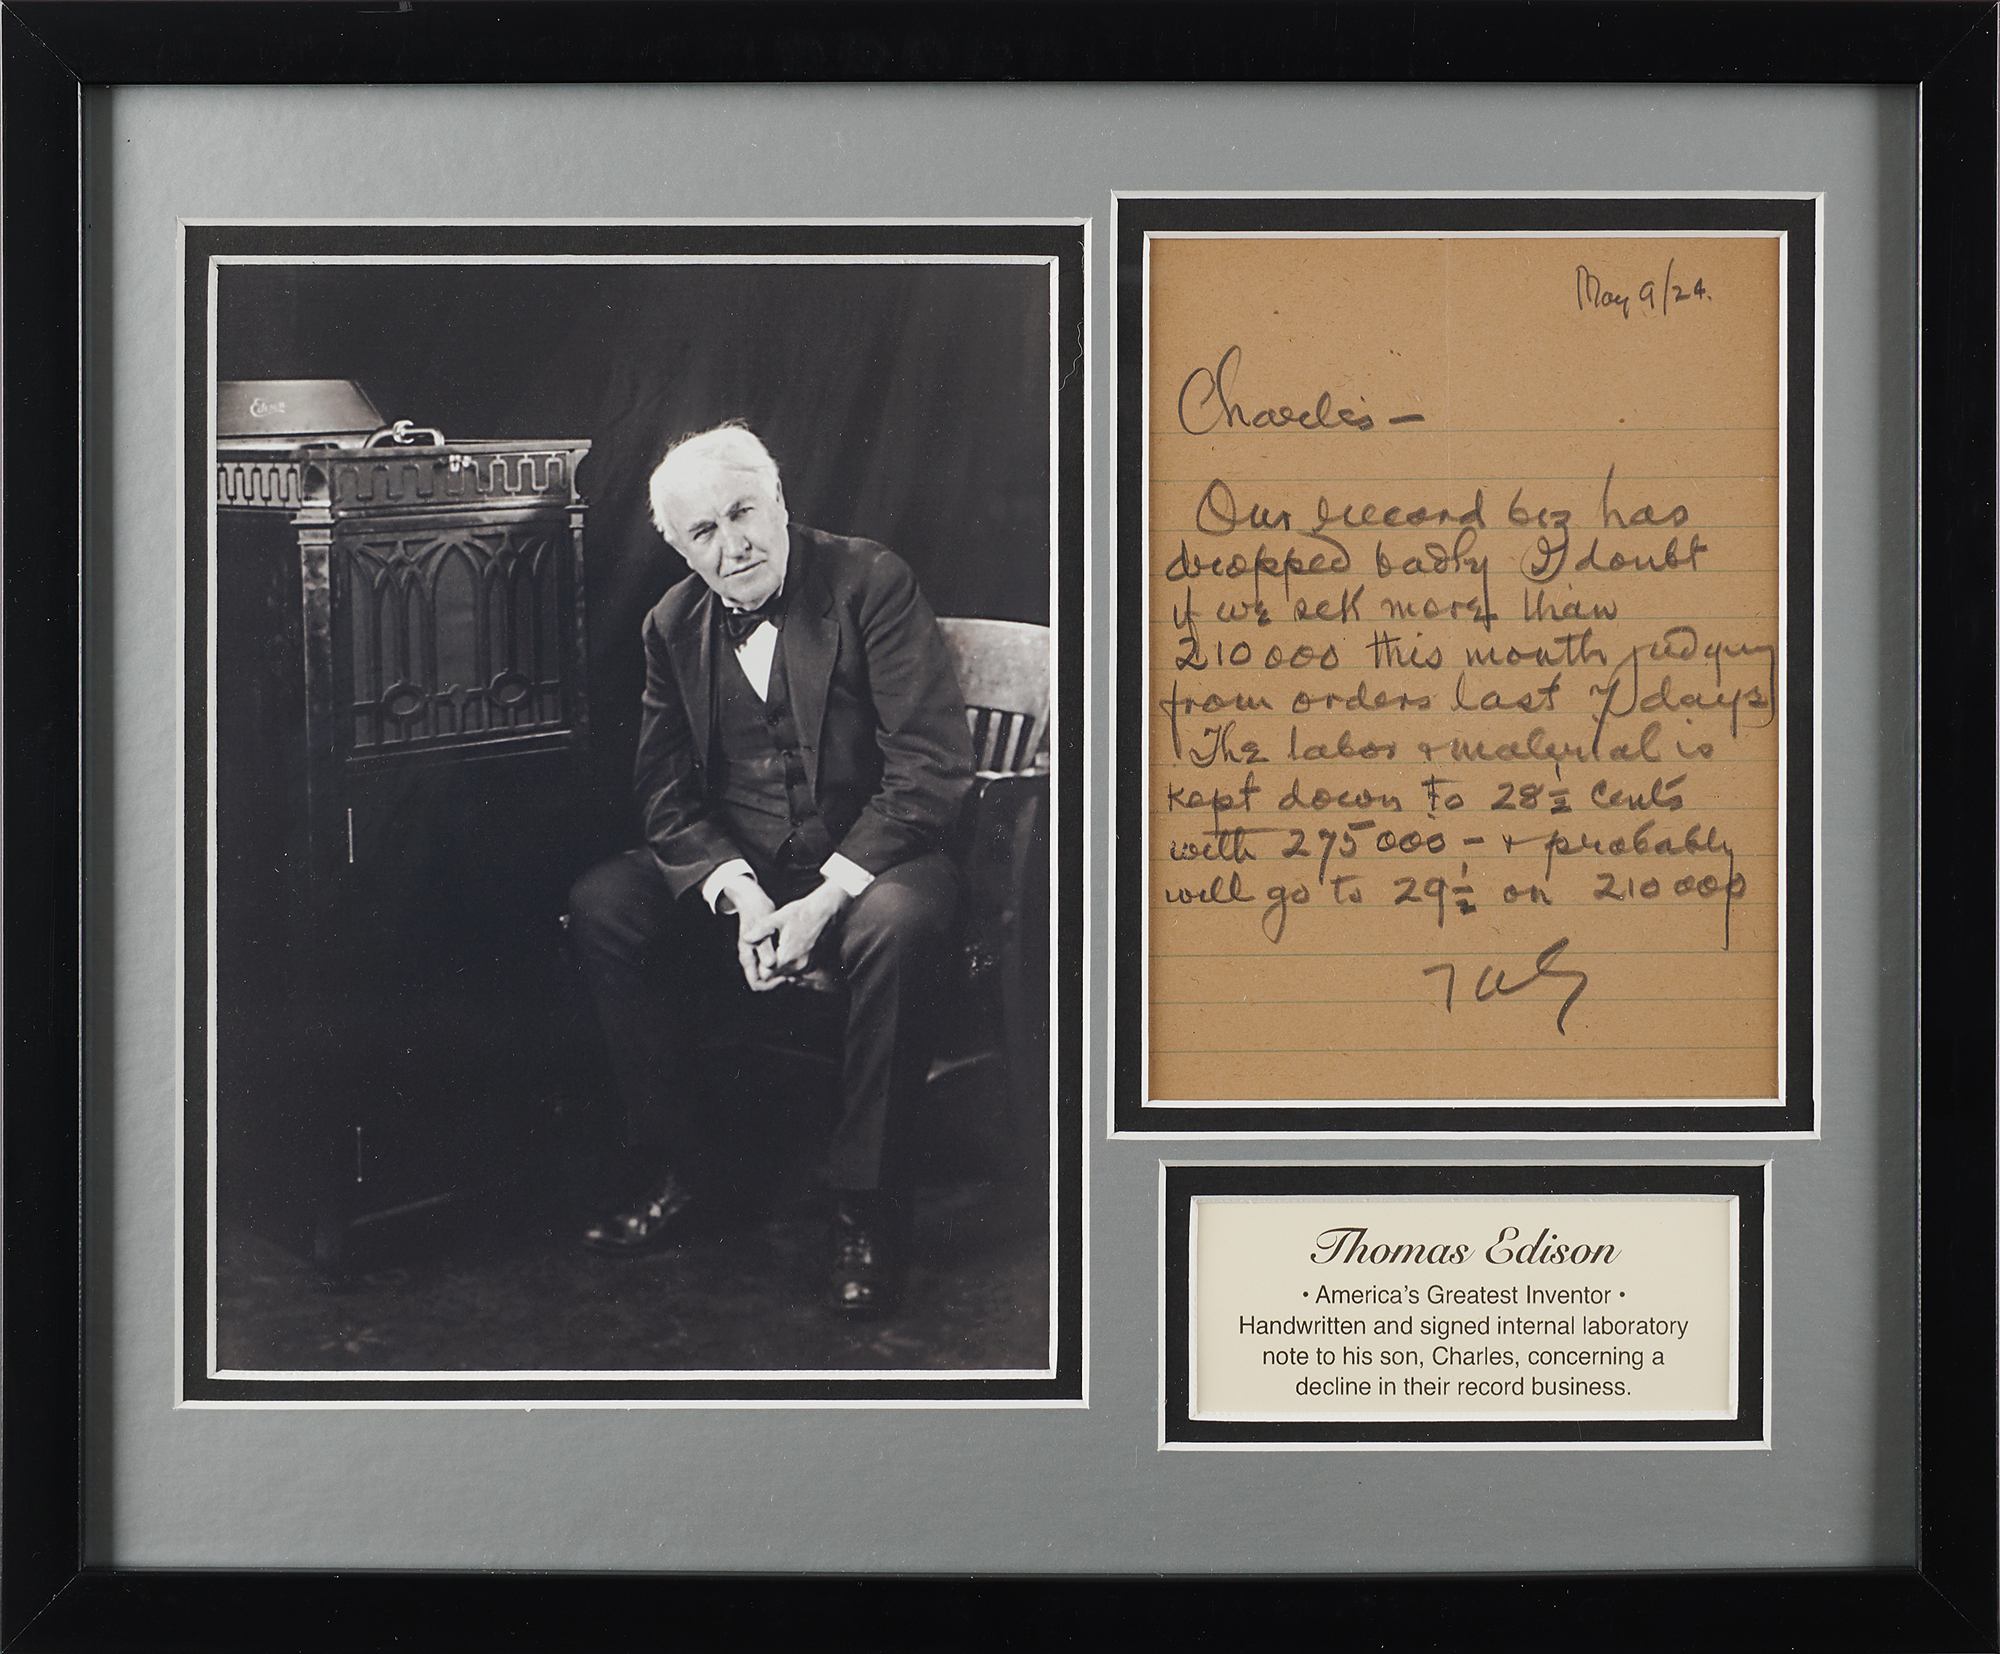 Edison
May 9/24.
Charles –
Our record biz has
dropped badly I doubt
if we sell more than
210000 this month judging
from orders last 7 days
The labor + material is
kept down to 28 1/2 cents
with 275000 – + probably
will go to 29 1/2 on 210000
Thomas Edison
• America's Greatest Inventor •
Handwritten and signed internal laboratory
note to his son, Charles, concerning a
decline in their record business.